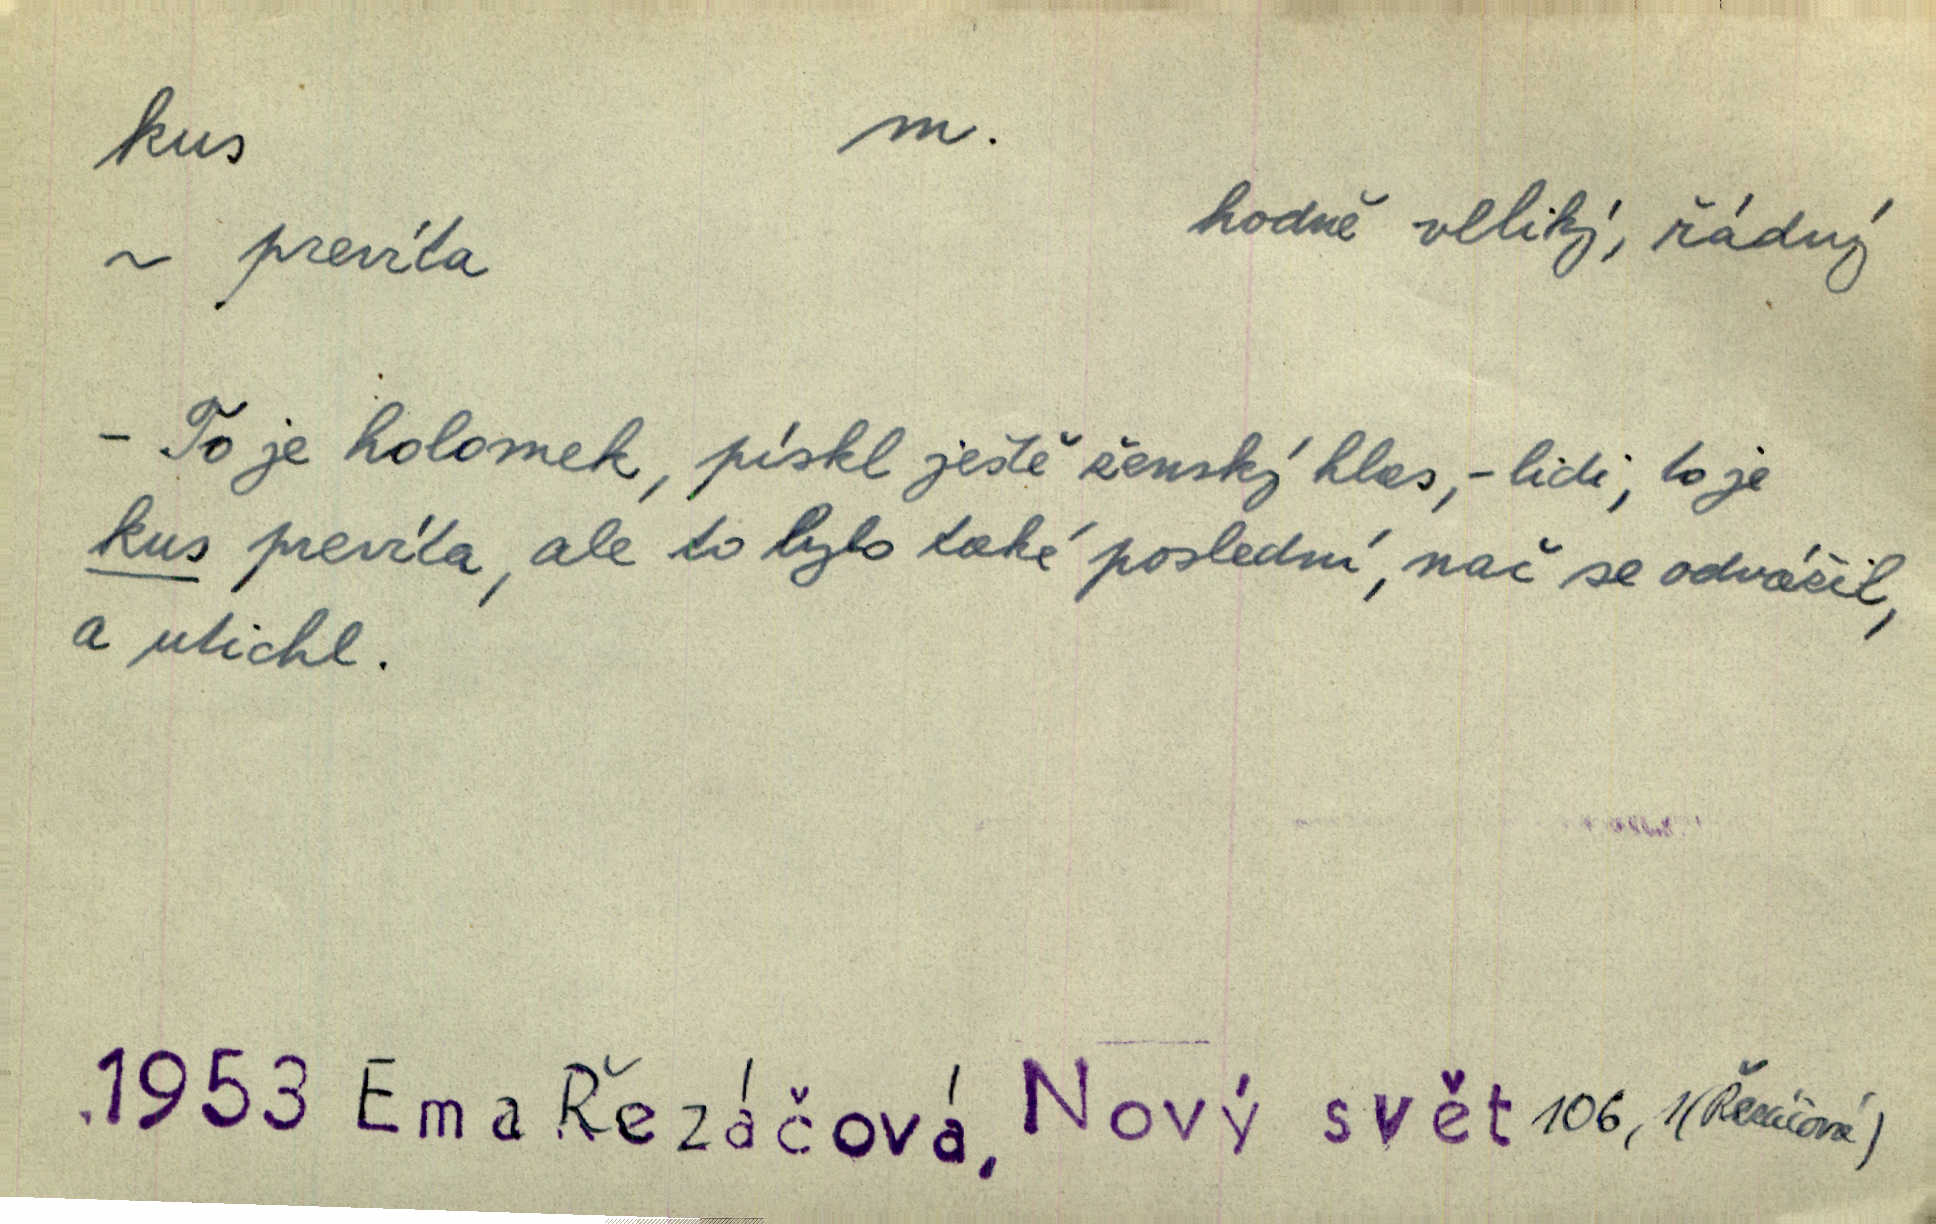 kus m.
hodně veliký, řádný
~ prevíta
- To je holomek, pískl ještě ženský hlas, - lidi, to je
kus prevíta, ale to bylo také poslední, nač se odvážil,
a utichl.
1953 Ema Řezáčová, Nový svět 106, 1 (Řezáčová)